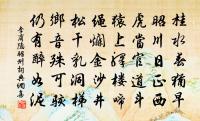 桂水春猶早
昭川日正西
虎當官道鬥
猿上驛樓啼
繩爛金沙井
松乾乳洞梯
鄉音殊可駭
仍有醉如泥
李商隱昭州詞典網